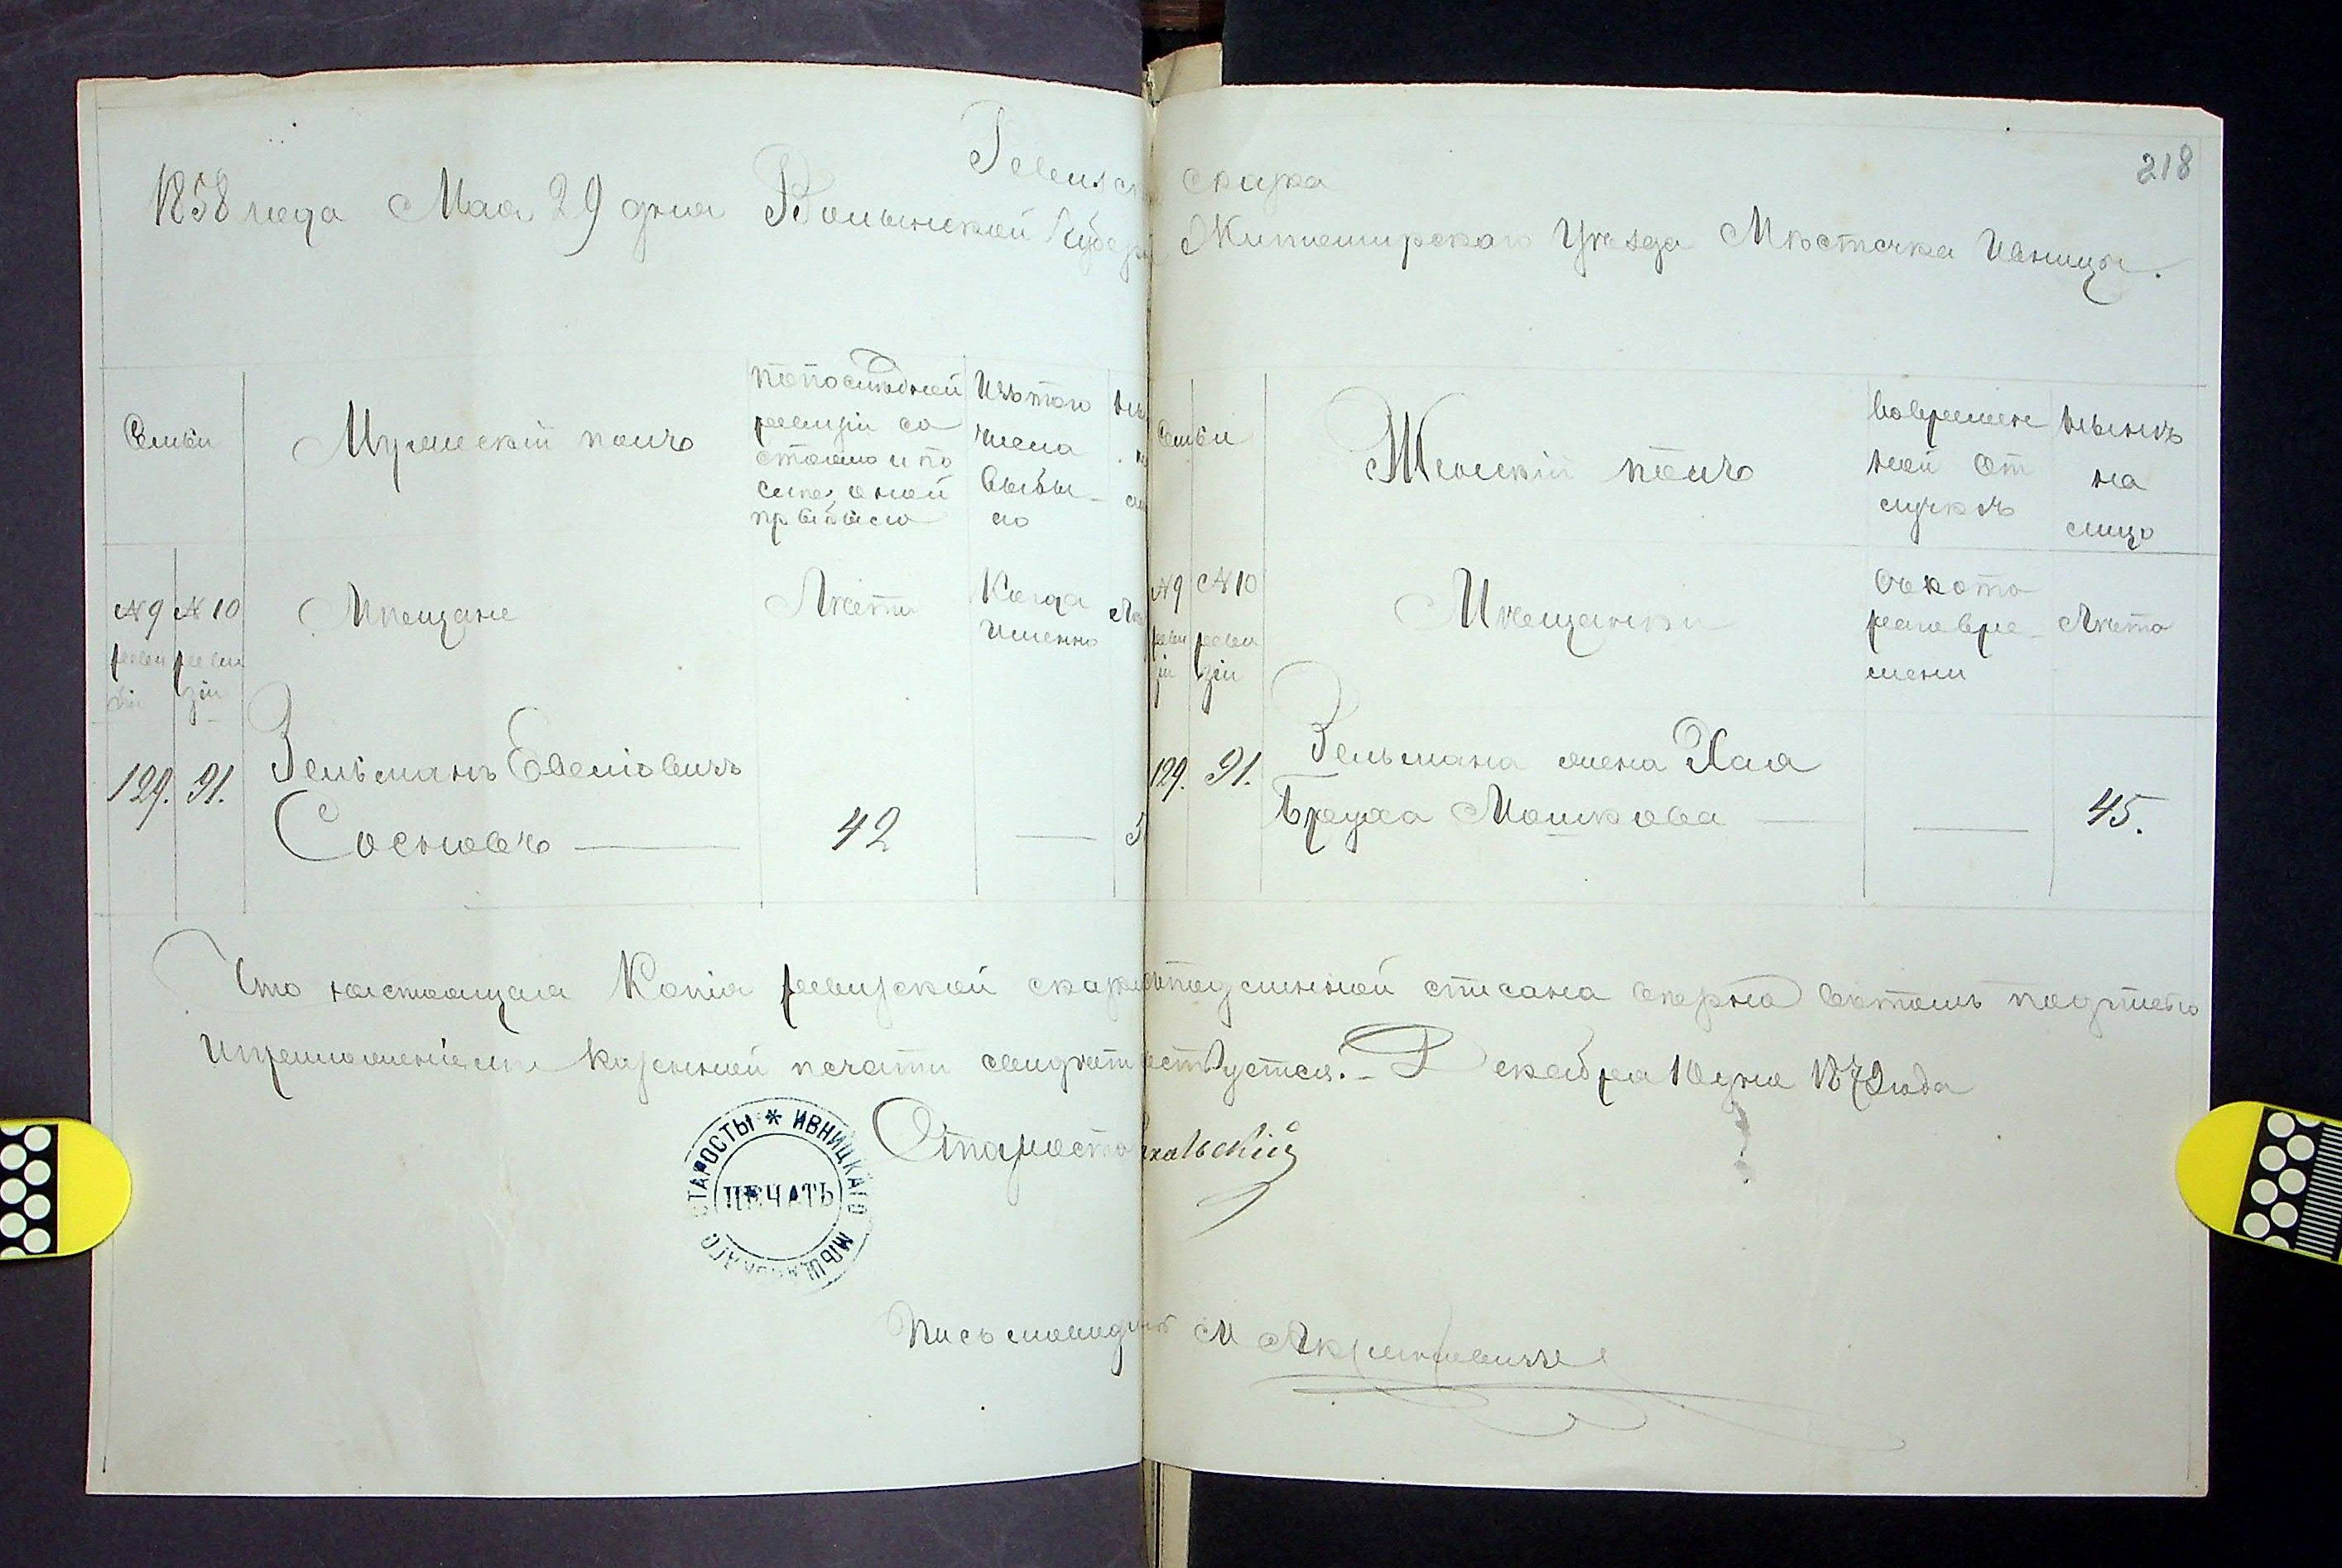 218
Ревизск сказка
1858 года Мая 29 дня Волынской Губерн Житомирскаго Уѣзда Мѣстечка Ивницы.
Семьи
Мужескій полъ
по последней
ревизіи со
стояло и по
слѣ оной
прибыло
Изъ того
числа
выбы-
ло
№ 9
реви
зіи
№ 10
реви
зіи
Мѣщане
Лѣта
Когда
именно
129. 91.
Зельманъ Евелiовичъ
Сосновъ — 42 —
Семьи
Женскій полъ
Во времен
ной от
лучкѣ
Нынѣ
на
лицо
№ 9
реви
зіи
№ 10
реви
зіи
Мѣщанки
Съ кото
раго вре-
мени
Лѣта
129. 91.
Зельмана жена Хая
Бруха Мошкова — — 45.
Что настоящая Копія ревизской сказк подлинной списана верно въ томъ подписью
и приложеніемъ казенной печати свидѣтельствуется. Декабря 10 дня 187 года
Староста кальскій
ПЕЧАТЬ
СТАРОСТЫ * ИВНИЦКАГО МѢЩАНСКАГО
Письмоводит М